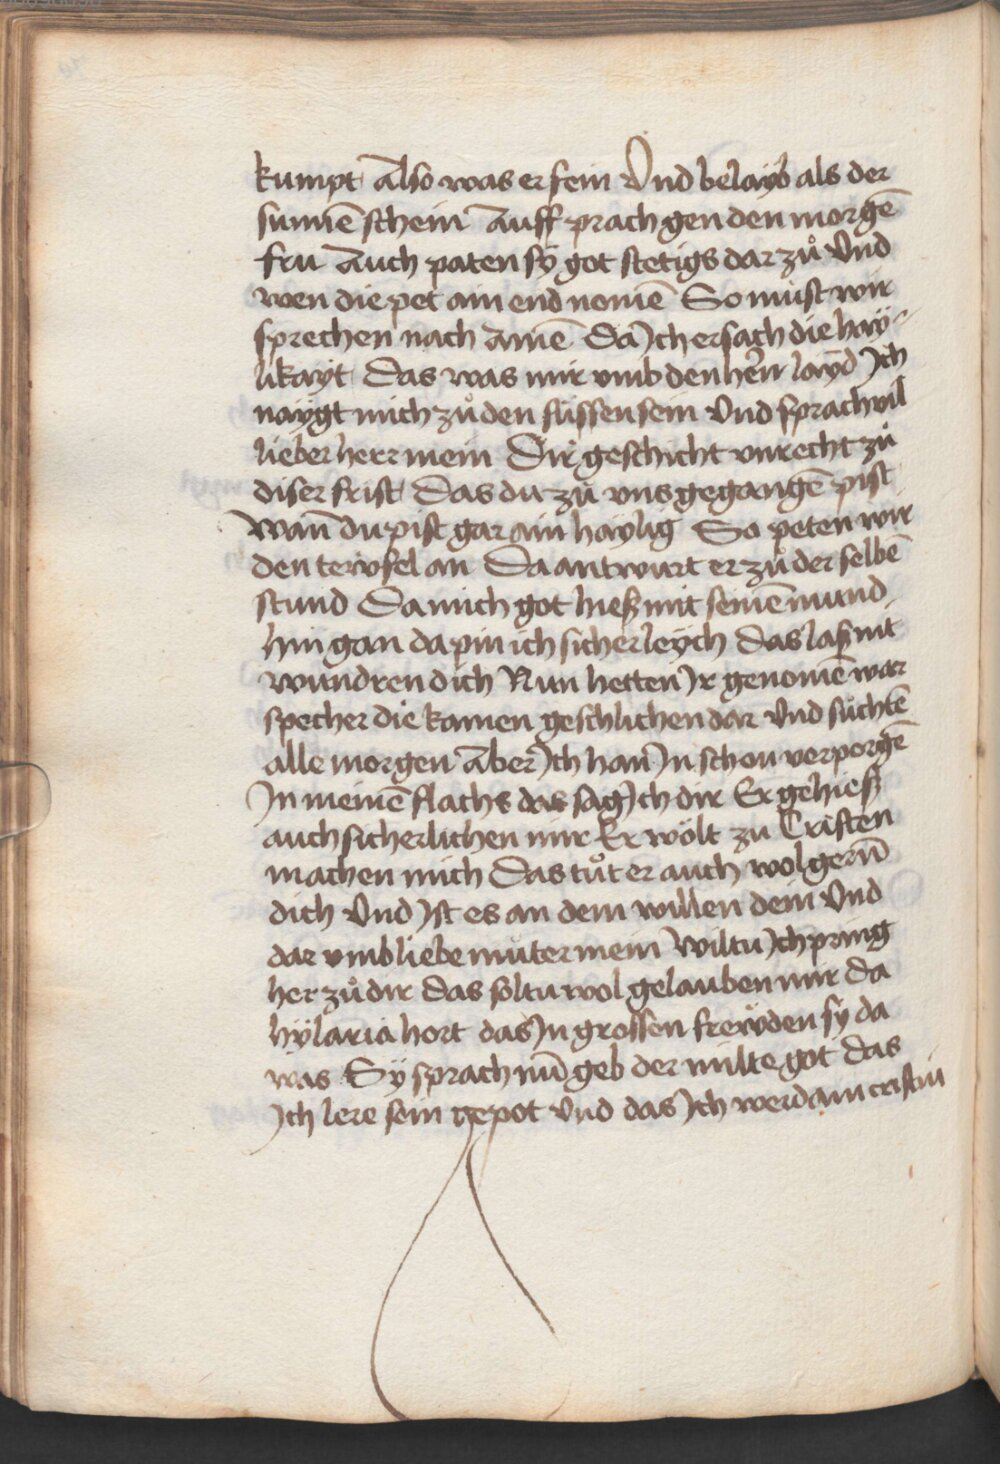 kumpt Also was er sein Vnd belayb als der
sunnē schein Auff prach gen den morgē
fru Auch paten sÿ got stetigs dar zů Vnd
wen die pet ain end nomē So müst wir
sprechen nach amē Da Ich ersach die hay-
likayt Das was mir vmb den hern layd Ich
naÿgt mich zů den füssen sein Vnd sprach vil
lieber herr mein Dir geschicht vnrecht zů
diser frist Das du zů vns gegangē pist
Wañ du pist gar ain haylig So peten wir
den tewfel an Da antwurt er zů der selbē
stund Da mich got hieß mit seinē mund
hin gan da pin ich sicherleych Das laß nit
wundren dich Nun hetten Ir genomē war
specher die kamen geschlichen dar Vnd sůchtē
alle morgen Aber Ich han In schon verporgē
In meinē flachs das sag Ich dir Er gehieß
auch sicherlichen mir Er wölt zu Cristen
machen mich Das tůt er auch wol gerñ
dich Vnd Ist es an dem willen dein Vnd
dar vmb liebe můter mein Wiltu Ich pring
her zů dir Das soltu wol gelauben mir Da
hÿlaria hort das In grossen frewden sÿ da
was Sÿ sprach nū geb der milte got Das
Ich lere sein gepot Vnd das Ich werd ain cristin